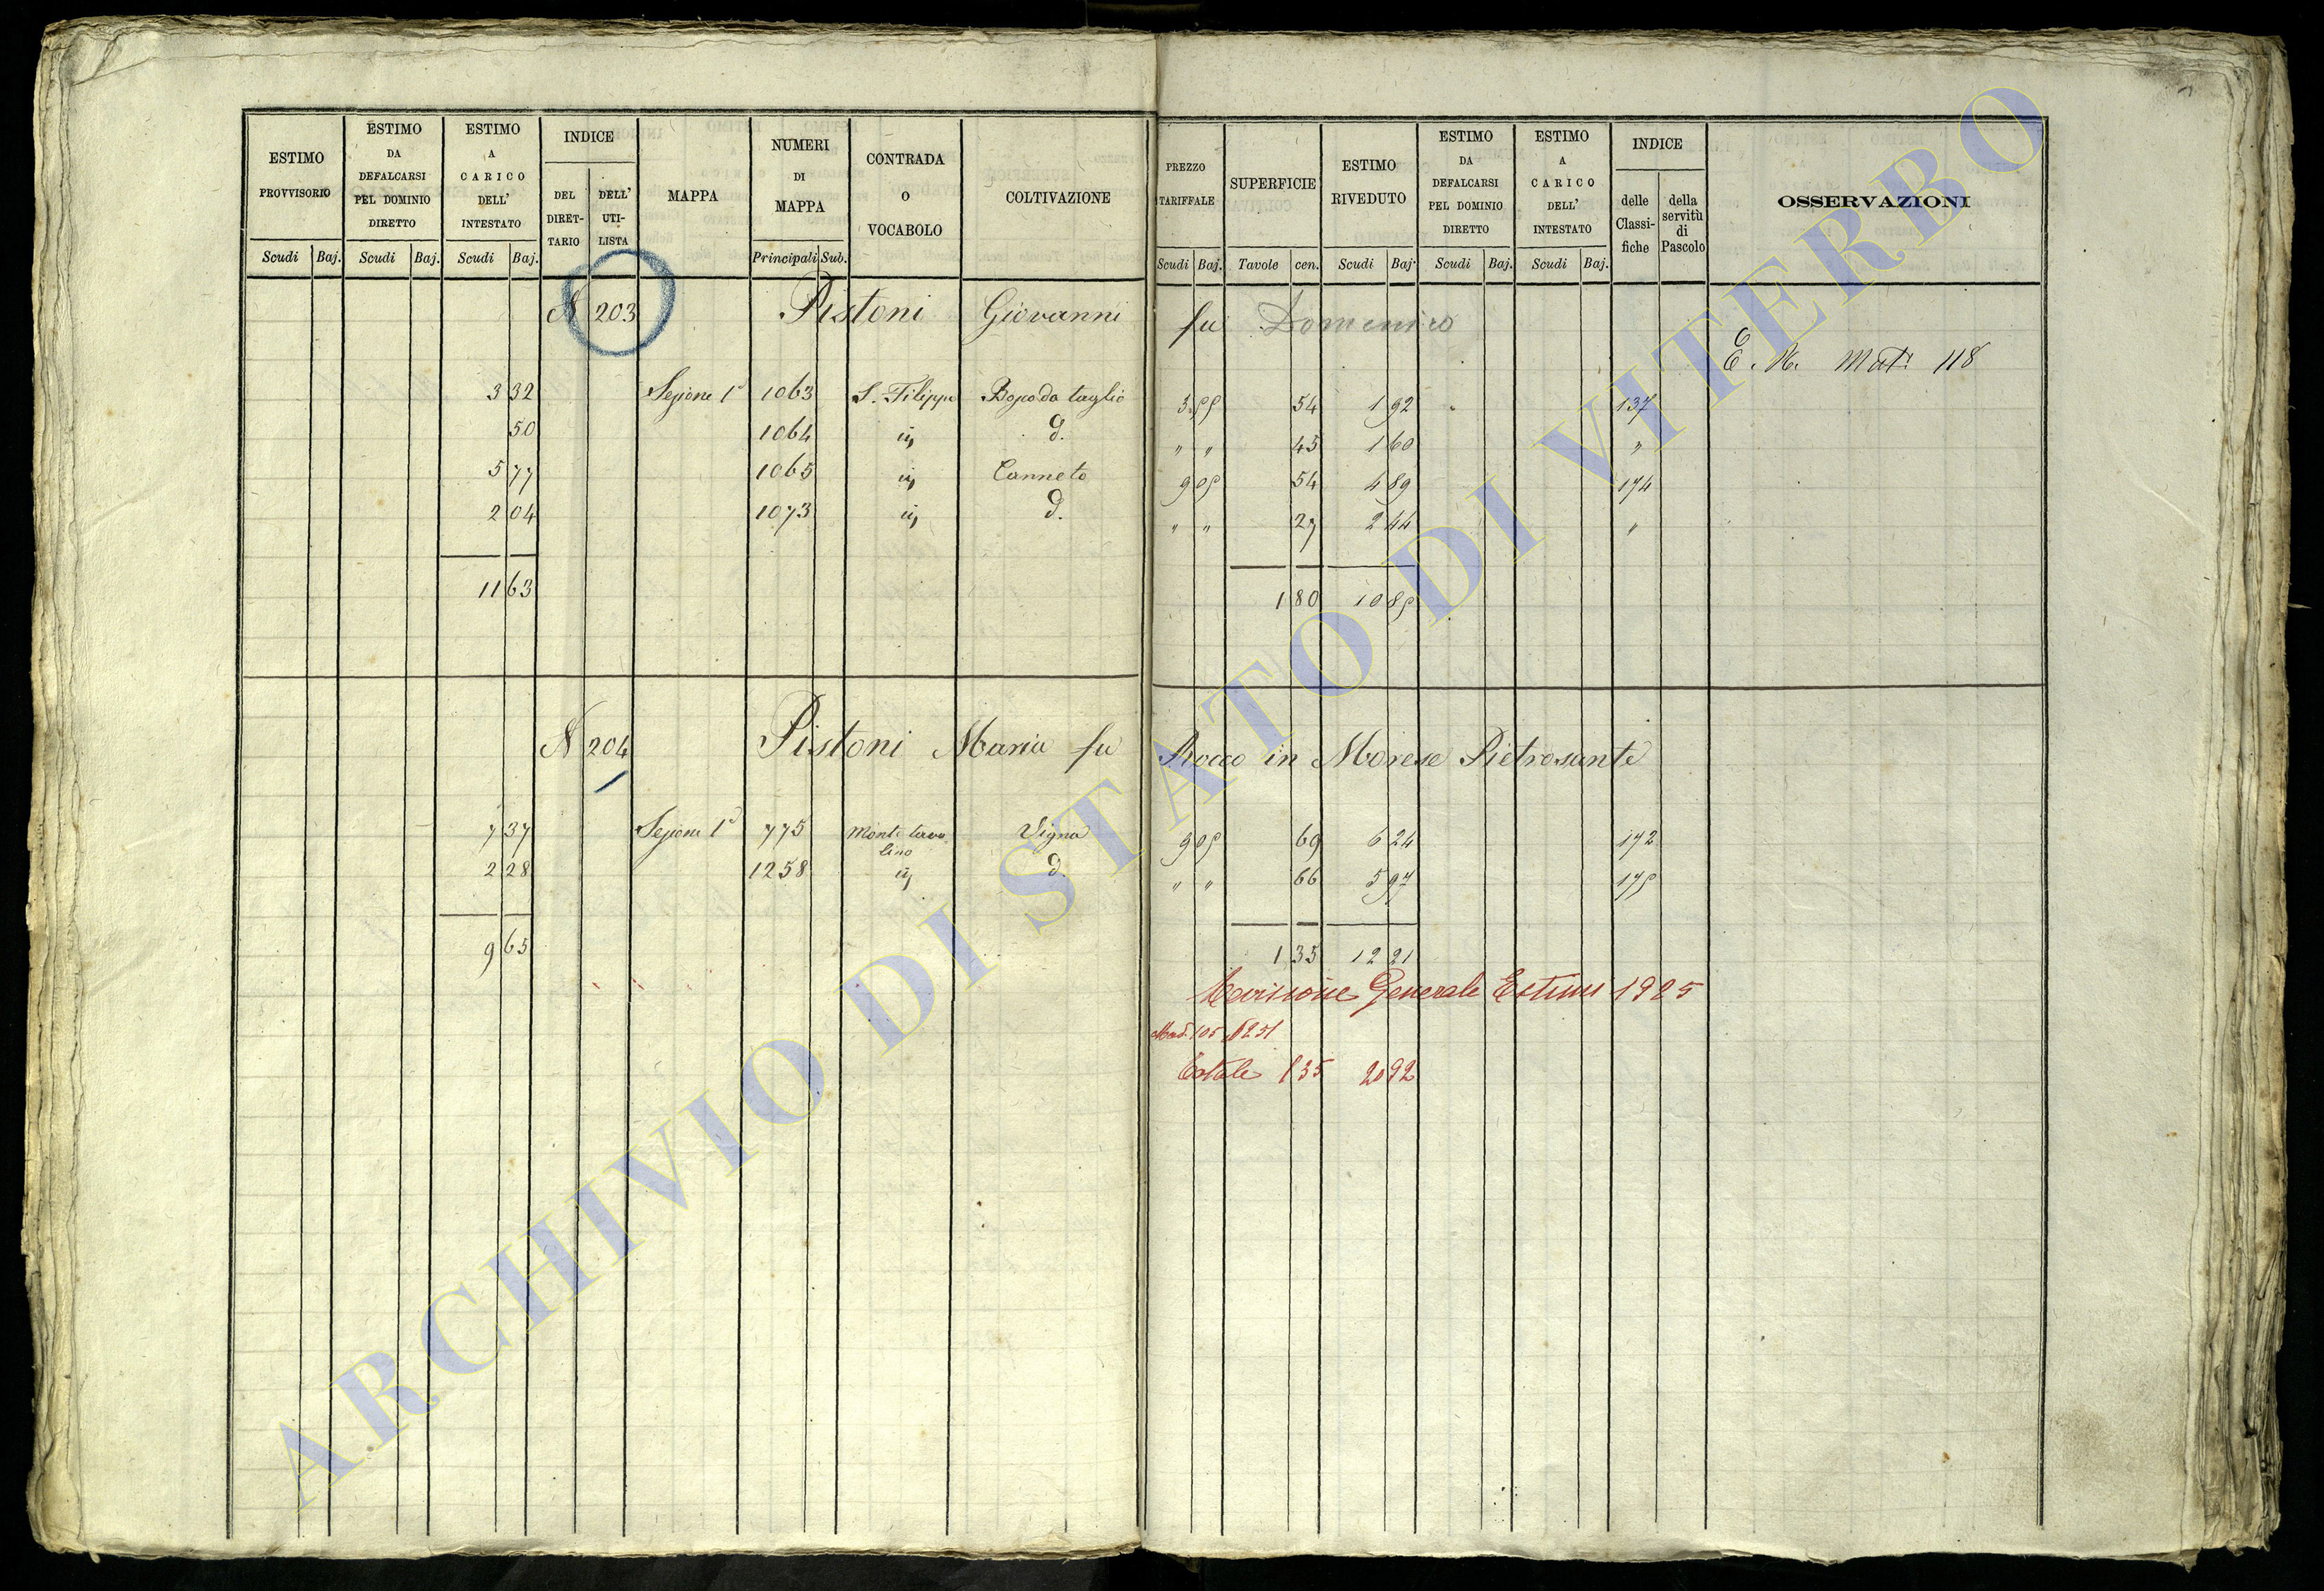 ESTIMO PROVVISORIO | ESTIMO DA DEFALCARSI PEL DOMINIO DIRETTO | ESTIMO A CARICO DELL' INTESTATO | INDICE | MAPPA | NUMERI DI MAPPA | CONTRADA O VOCABOLO | COLTIVAZIONE | PREZZO TARIFFALE | SUPERFICIE | ESTIMO RIVEDUTO | ESTIMO DA DEFALCARSI PEL DOMINIO DIRETTO | ESTIMO A CARICO DELL' INTESTATO | INDICE | OSSERVAZIONI
DEL DIRETTARIO | DELL' UTILISTA | delle Classifiche | della servitù di Pascolo
Scudi | Baj. | Scudi | Baj. | Scudi | Baj. | Principali | Sub. | Scudi | Baj. | Tavole | cen. | Scudi | Baj. | Scudi | Baj. | Scudi | Baj.
N 203 Pistoni Giovanni fu Domenico
E. N. Mat: 118
3 32 Sezione 1ª 1063 S. Filippo Bosco da taglio 54 1 92 137
50 1064 id. d. " " 45 1 60 "
5 77 1065 id. Canneto 54 4 89 174
2 04 1073 id. d. " " 27 2 44 "
11 63 1 80 10 85
N 204 Pistoni Maria fu Rocco in Morese Pietrosante
7 37 Sezione 1ª 775 Monte tavolino Vigna 9 05 69 6 24 172
2 28 1258 id. d. " " 66 5 97 175
9 65 1 35 12 21
Revisione Generale Estimi 1925
Mod. 105 N 251
Totale 1 35 20 92
ARCHIVIO DI STATO DI VITERBO